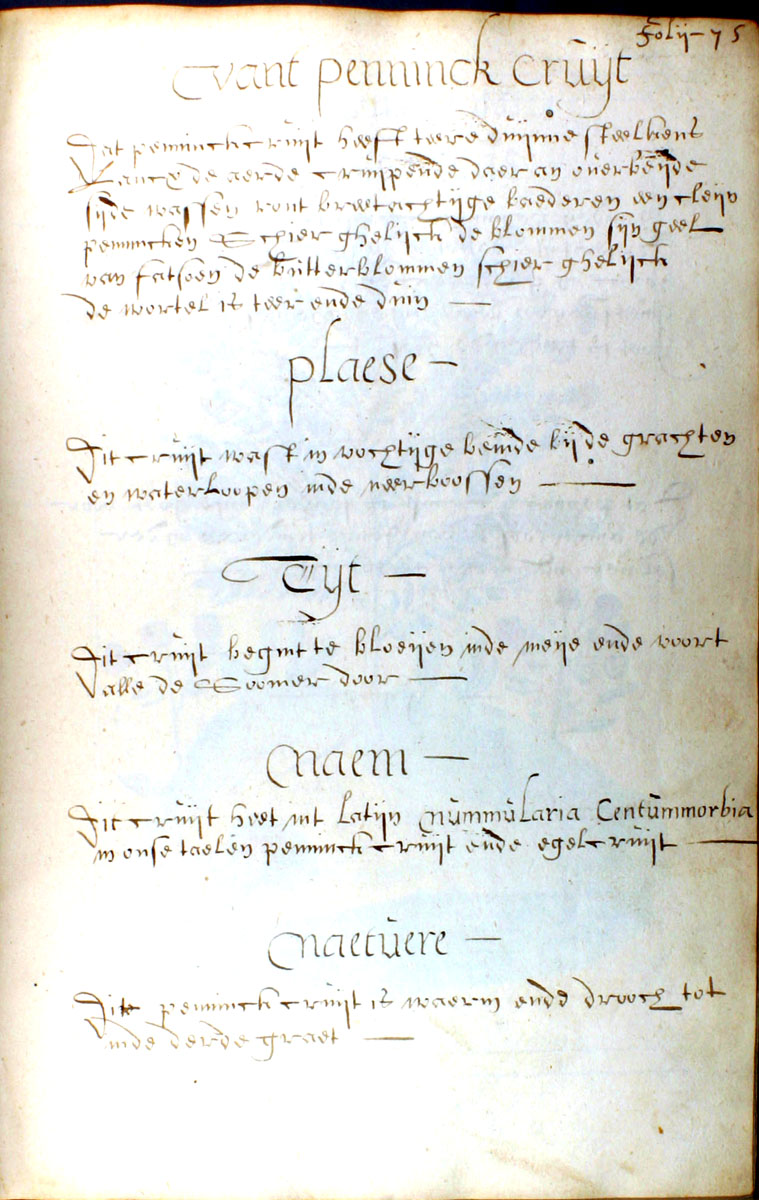 Folij 75
Vant penninck crúÿt
Dat penninckcruijt heeft teere duijnne steelkens
Lancx de aerde cruijpende daer an ouerbeijde
sijde wassen ront breetachtijge baederen een cleijn
penincken Schier ghelijck de blommen sijn geel
van fatsoen de bútterblommen schier ghelijck
de wortel is teer ende duin
plaese
Dit cruijt wast in vochtijge bemde bijde grachten
en waterloopen inde neerboossen
Tijt
Dit cruijt begint te bloeijen inde meije ende voort
alle de Soomer door
Naem
Dit cruijt heet int Latijn Nummularia Centummorbia
in onse taelen penninckcruijt ende egelcruijt
Naetúere
Dite penninckcruijt is waerm ende drooch tot
inde derde graet